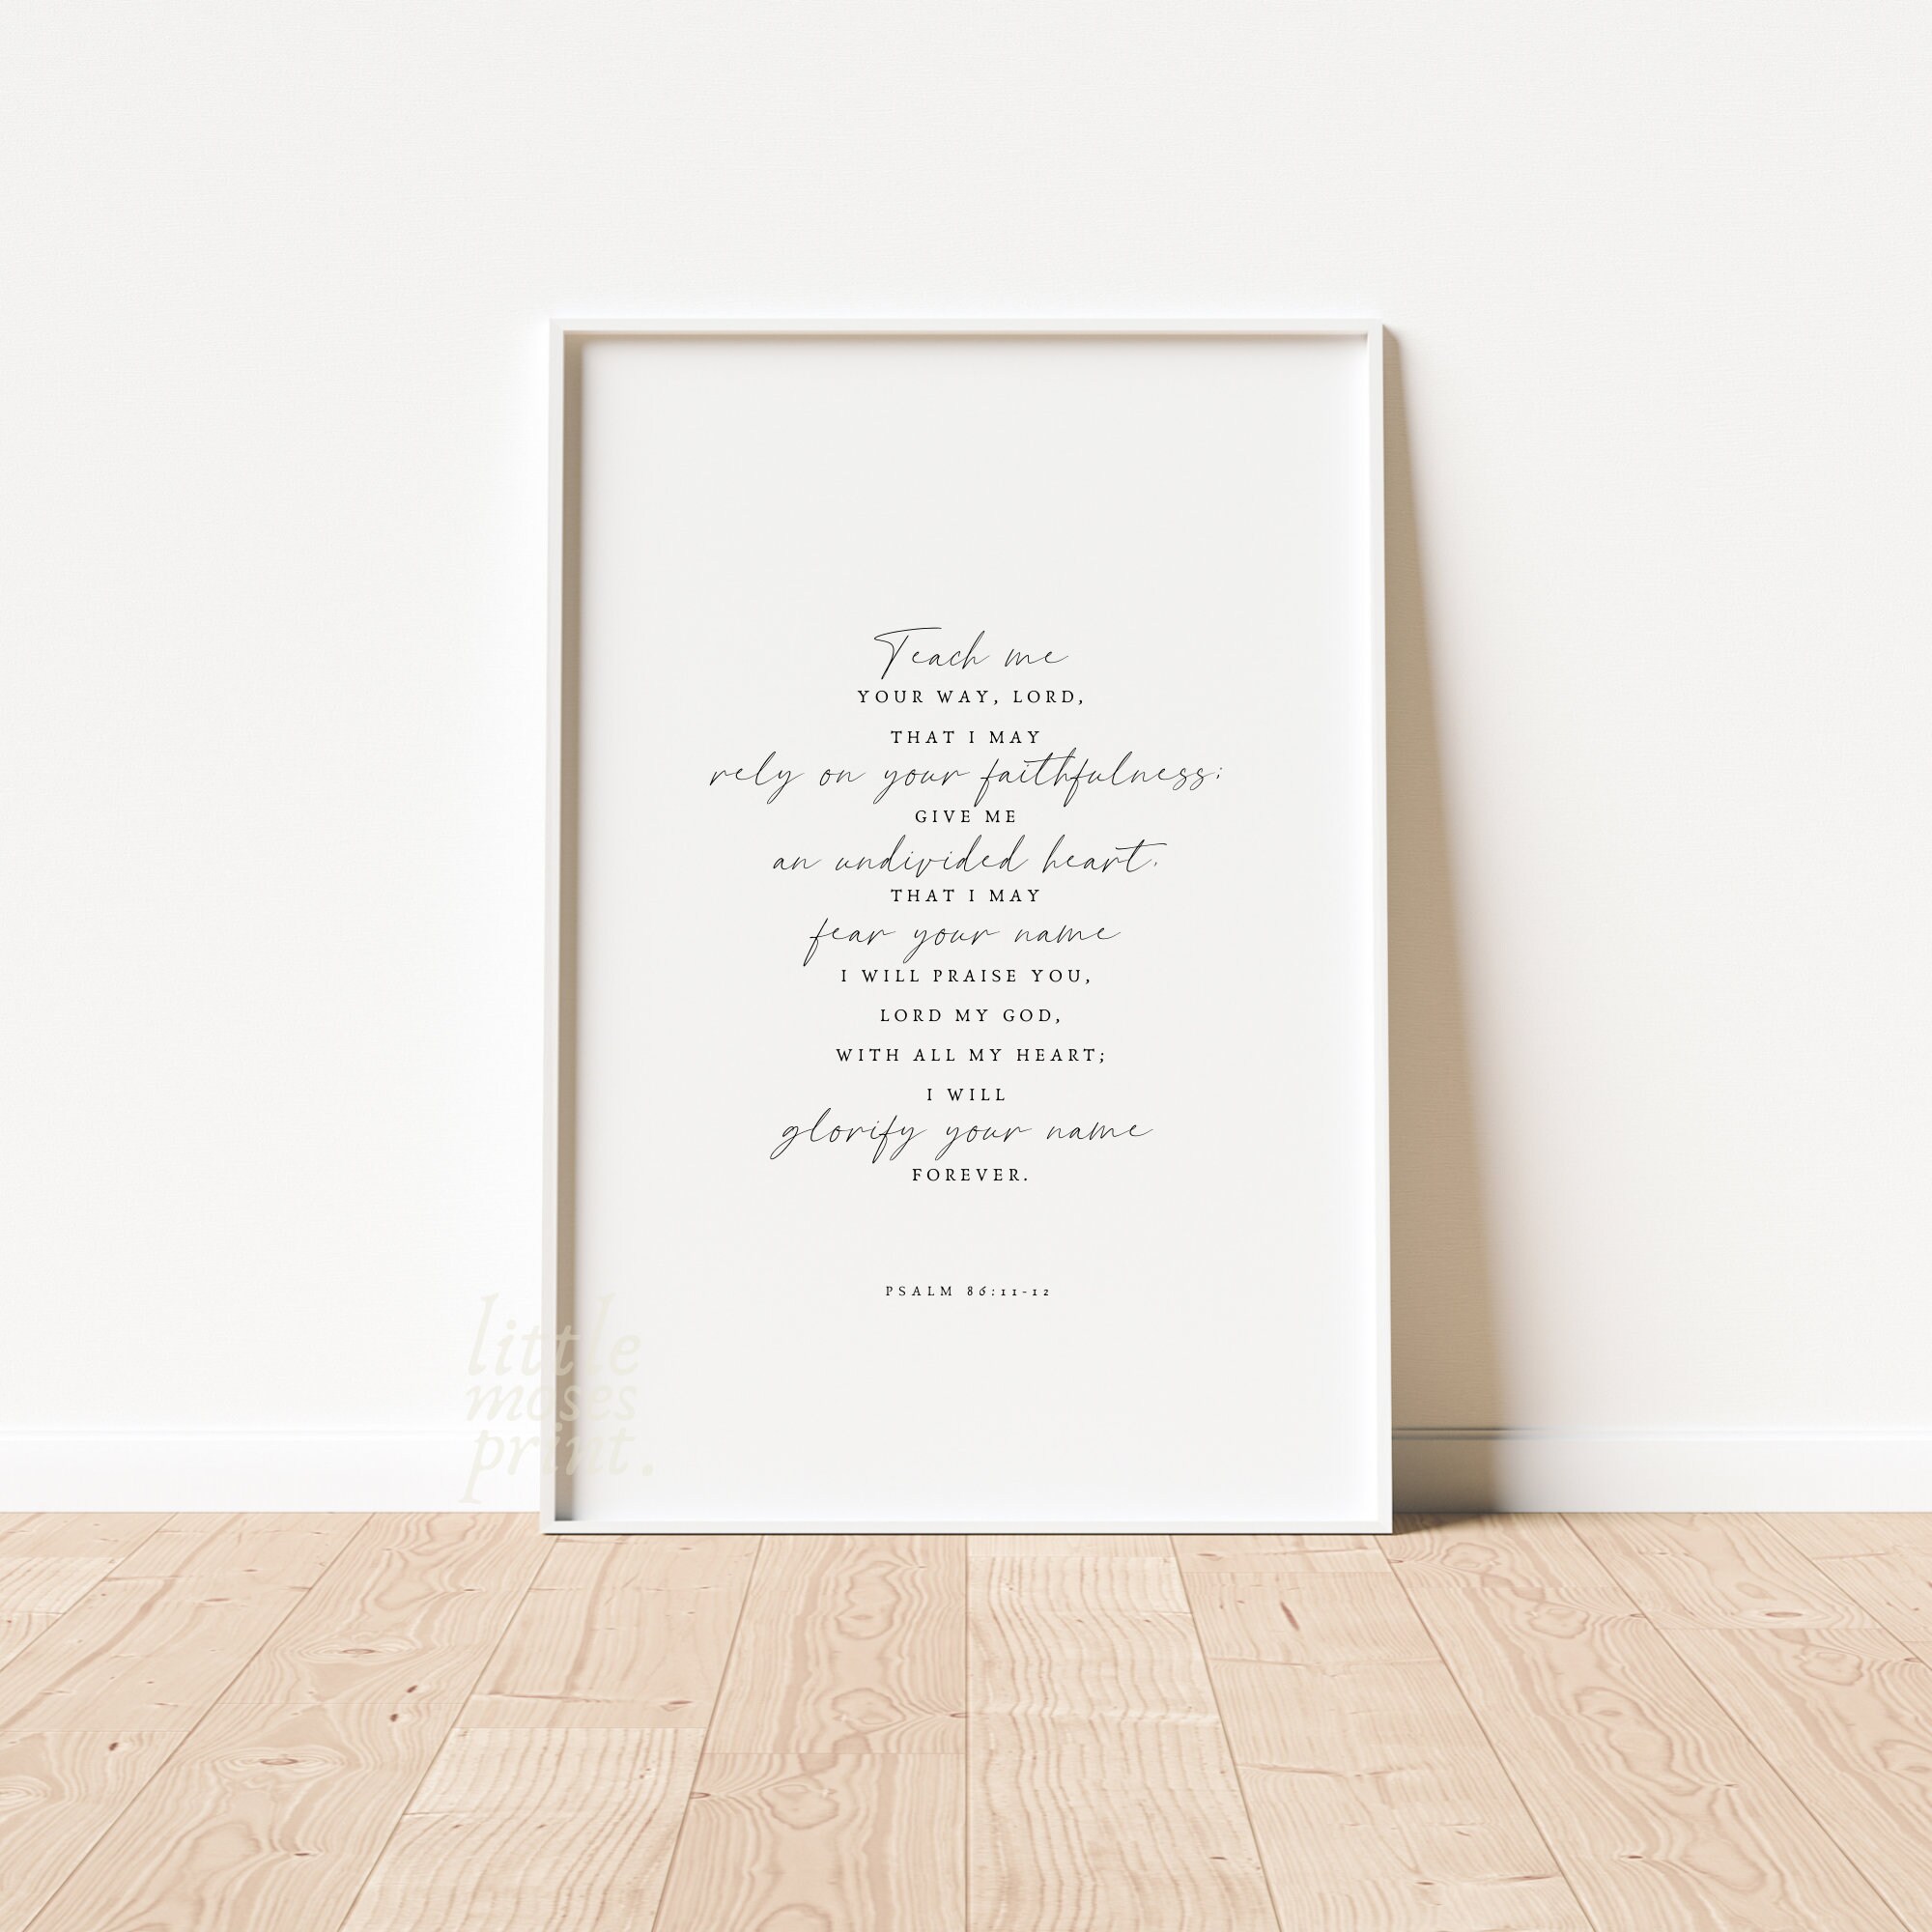 Teach me
YOUR WAY, LORD,
THAT I MAY
rely on your faithfulness;
GIVE ME
an undivided heart,
THAT I MAY
fear your name
I WILL PRAISE YOU,
LORD MY GOD,
WITH ALL MY HEART;
I WILL
glorify your name
FOREVER.
PSALM 86:11-12
little
moses
print.